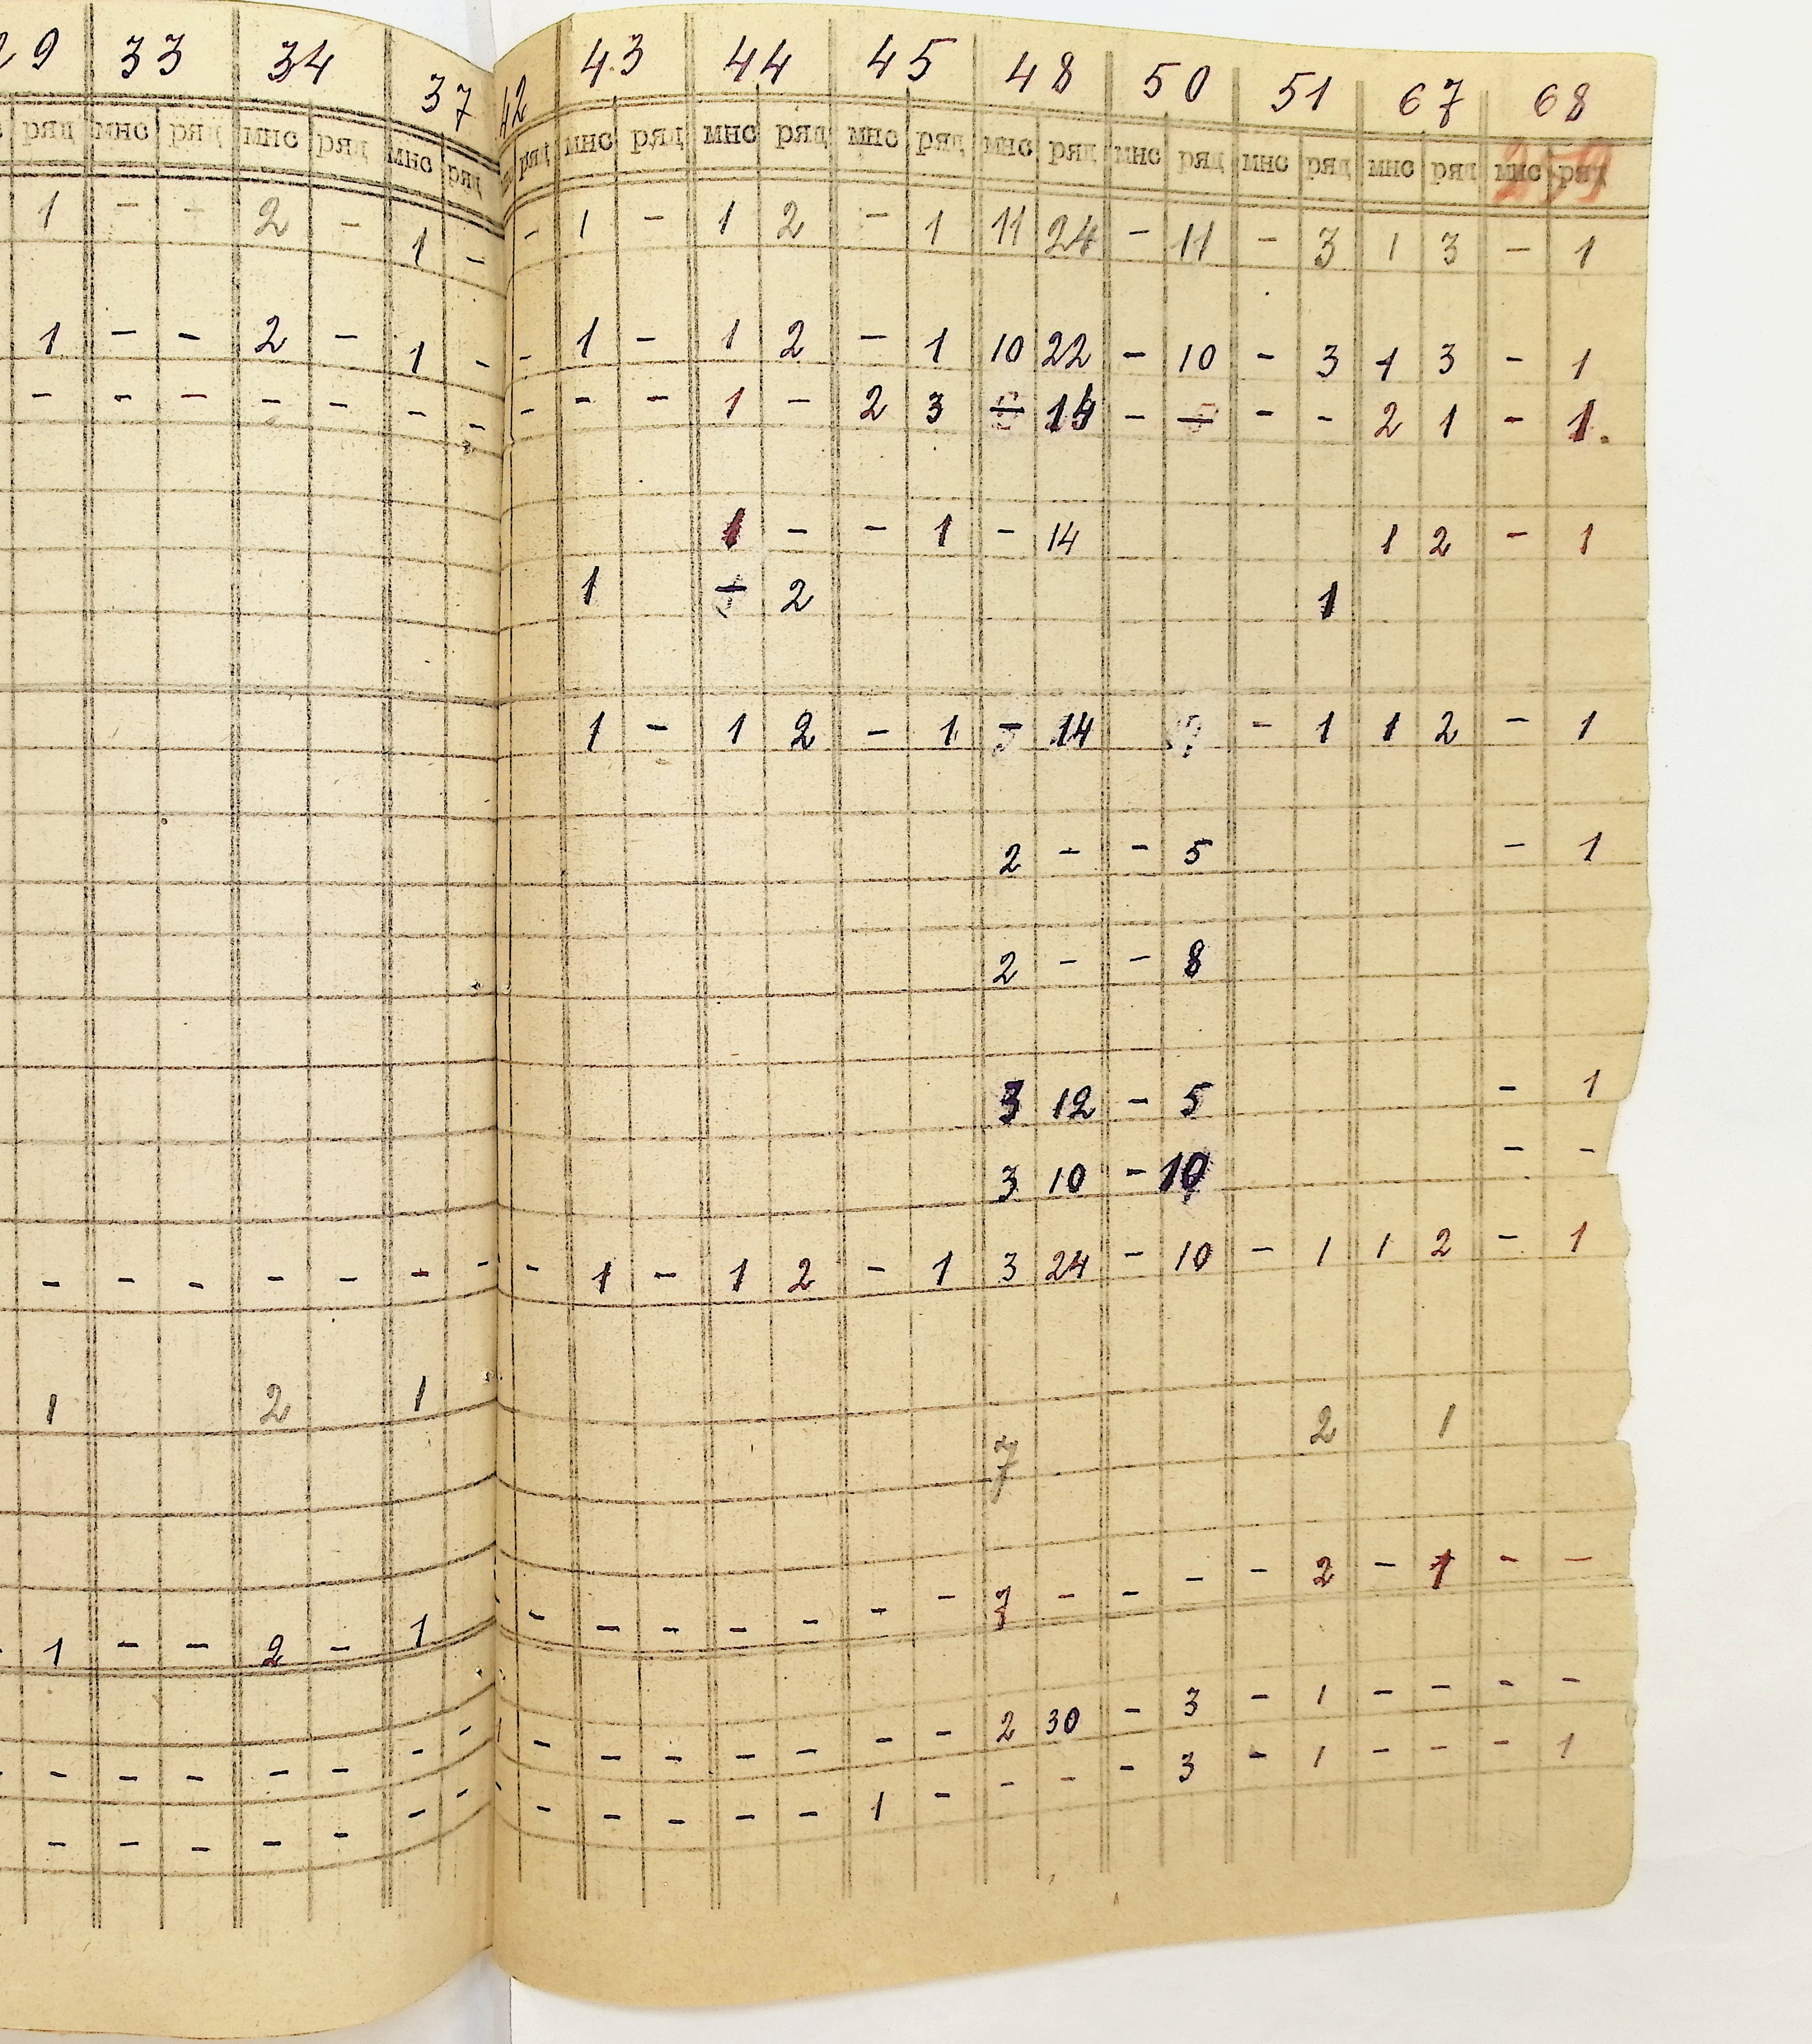 29 33 34 37 42 43 44 45 48 50 51 67 68
ряд мнс ряд мнс ряд мнс ряд ряд мнс ряд мнс ряд мнс ряд мнс ряд мнс ряд мнс ряд мнс ряд мнс ряд
259
1 - - 2 - 1 - - 1 - 1 2 - 1 11 24 - 11 - 3 1 3 - 1
1 - - 2 - 1 - - 1 - 1 2 - 1 10 22 - 10 - 3 1 3 - 1
- - - - - - - - - - 1 - 2 3 - 14 - - - - 2 1 - 1.
1 - - 1 - 14 1 2 - 1
1 - 2 1
1 - 1 2 - 1 - 14 - 1 1 2 - 1
2 - - 5 - 1
2 - - 8
3 12 - 5 - 1
3 10 - 10 - -
- - - - - - - - 1 - 1 2 - 1 3 24 - 10 - 1 1 2 - 1
1 2 1 7 2 1
- 1 - - 2 - 1 - - - - - - - - 7 - - - - 2 - 1 - -
- - - - - - - - - - - - - - - 2 30 - 3 - 1 - - - -
- - - - - - - - - - - - - 1 - - - - 3 - 1 - - - 1